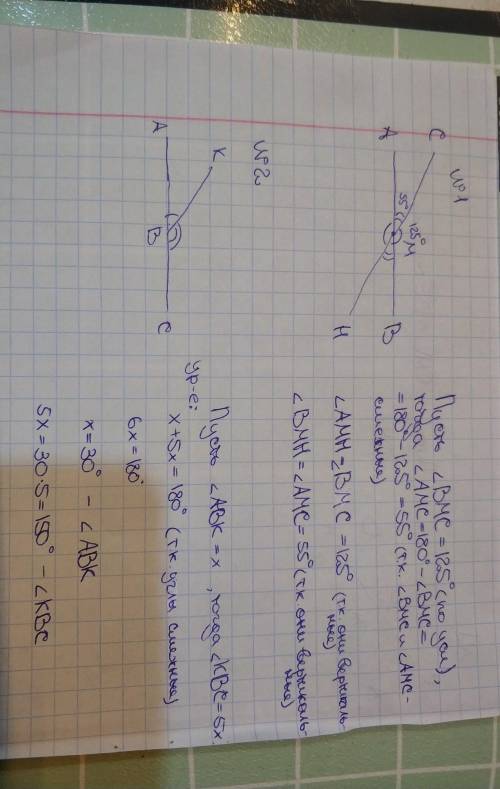 №1
C
A
55°
125°
M
B
H
Пусть ∠BMC = 125° (по усл),
тогда ∠AMC = 180° - ∠BMC =
= 180° - 125° = 55° (т.к. ∠BMC и ∠AMC -
смежные)
∠AMH = ∠BMC = 125° (т.к. они вертикаль-
ные)
∠BMH = ∠AMC = 55° (т.к они вертикаль-
ные)
№2
K
A
B
C
Пусть ∠ABK = x, тогда ∠KBC = 5x.
ур-е:
x + 5x = 180° (т.к. углы смежные)
6x = 180°
x = 30° - ∠ABK
5x = 30·5 = 150° - ∠KBC